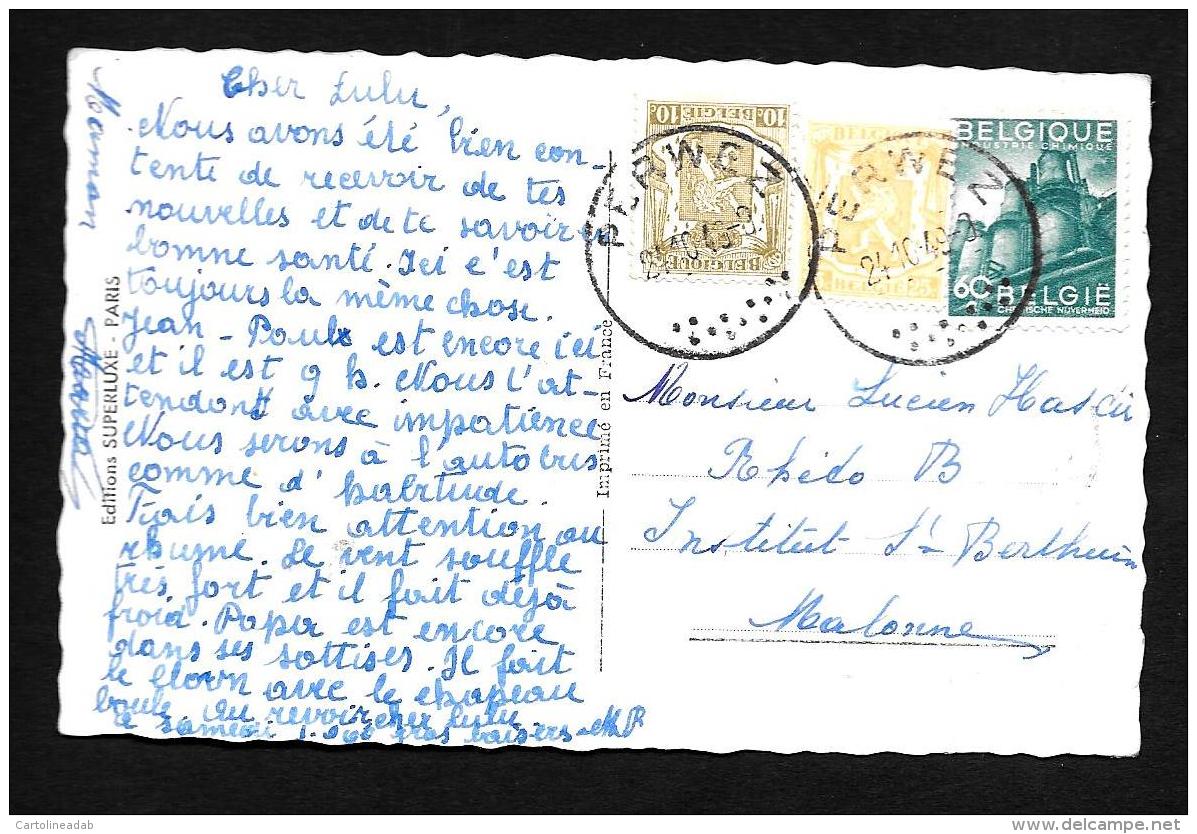 Cher Lulu,
Nous avons été bien con-
tente de recevoir de tes
nouvelles et de te savoir en
bonne santé. Ici c'est
toujours la même chose.
Jean-Paul est encore ici
et il est 9 h. Nous l'at-
tendons avec impatience
Nous serons à l'autobus
comme d'habitude.
Fais bien attention au
rhume. Le vent souffle
très fort et il fait déjà
froid. Papa est encore
dans ses sottises. Il fait
le clown avec le chapeau
boule. Au revoir cher Lulu
à samedi 1.000 gros baisers
Maman
Editions SUPERLUXE - PARIS
Imprimé en France
10c BELGIË 10c
BELGIQUE
PERWEZ
24.10.49
BELGIQUE
BELGIË
PERWEZ
24.10.49
BELGIQUE
INDUSTRIE CHIMIQUE
60c BELGIË
CHEMISCHE NIJVERHEID
Monsieur Lucien
Rhéto B
Institut St Berthuin
Malonne
Cartolineadab
www.delcampe.net